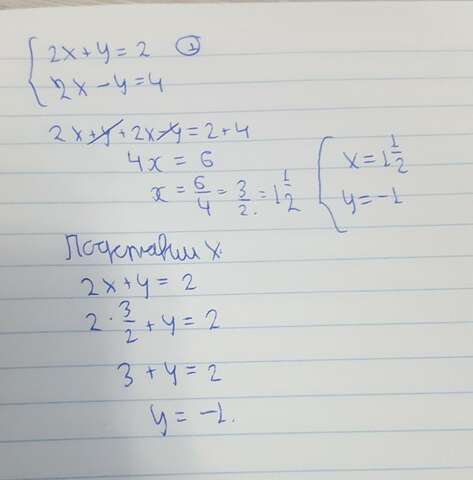 2x+y=2 ①
2x-y=4
2x+y+2x-y=2+4
4x=6
x=6/4=3/2=1 1/2
x=1 1/2
y=-1
Подставим x.
2x+y=2
2·3/2+y=2
3+y=2
y=-1.